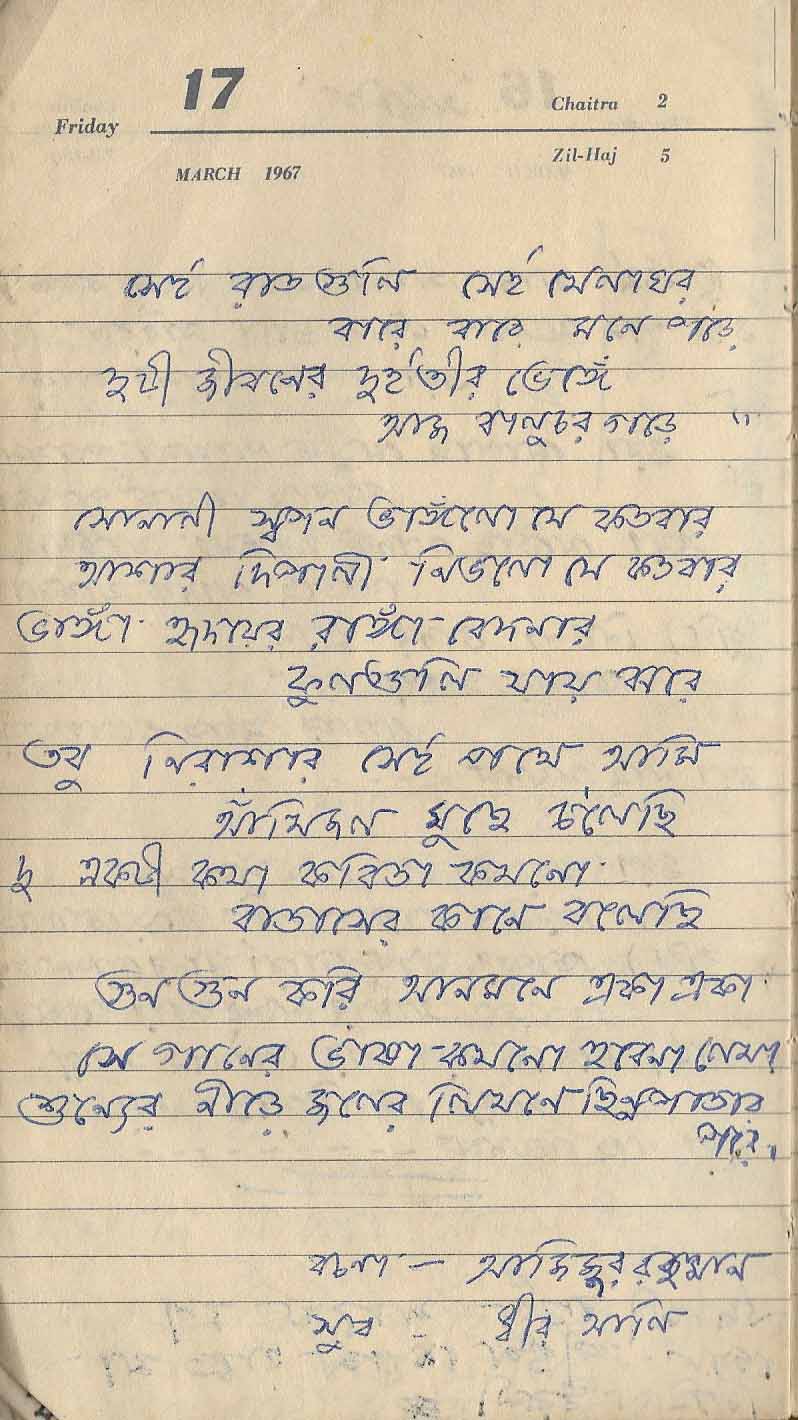 17
Friday
Chaitra 2
MARCH 1967
Zil-Haj 5
সেই রাত গুলি সেই খেলাঘর
বারে বারে মনে পড়ে
দুটী জীবনের দুই তীর ভেঙ্গে
আজ বালুচর গড়ে "
সোনালী স্বপন ভাঙ্গলো সে কতবার
আশার দিপালী নিভলো সে কতবার
ভাঙ্গা হৃদয়ের রাঙ্গা বেদনার
ফুলগুলি যায় ঝরে
তবু নিরাশার সেই পথে আমি
আঁখিজল মুছে চলেছি
দু একটী কথা কবিতা কখনো
বাতাসের কানে বলেছি
গুন গুন করি আনমনে একা একা
সে গানের ভাষা কখনো হবেনা লেখা
শুন্যের নীড়ে জলের লিখনে ছিন্নপাতার
পরে,
রচনা — আজিজুর রহমান
সুর - ধীর আলি